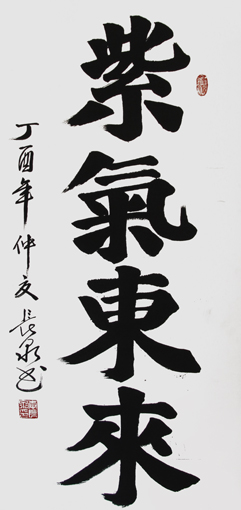 紫氣東來
丁酉年仲夏長泉书